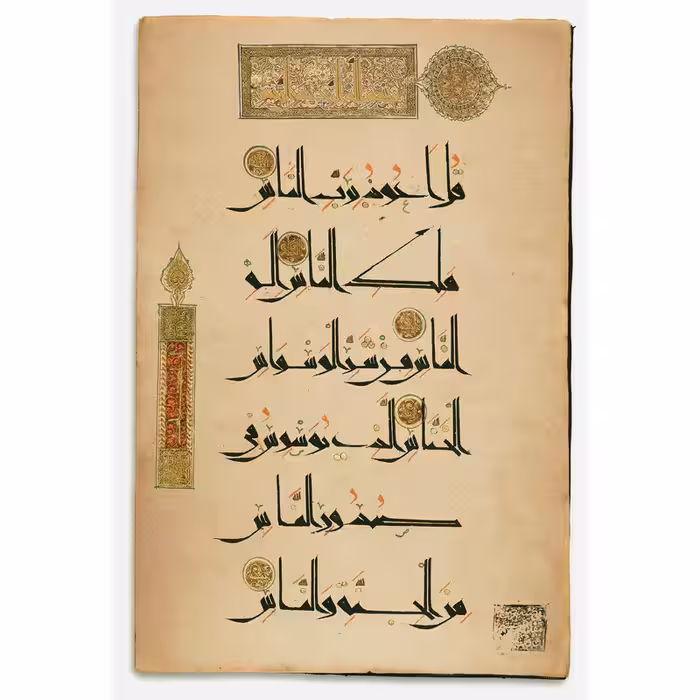 قُل أَعُوذُ بِرَبِّ النَّاسِ
مَلِكِ النَّاسِ إِلَهِ
النَّاسِ مِن شَرِّ الوَسوَاسِ
الخَنَّاسِ الَّذِي يُوَسوِسُ فِي
صُدُورِ النَّاسِ
مِنَ الجِنَّةِ وَالنَّاسِ